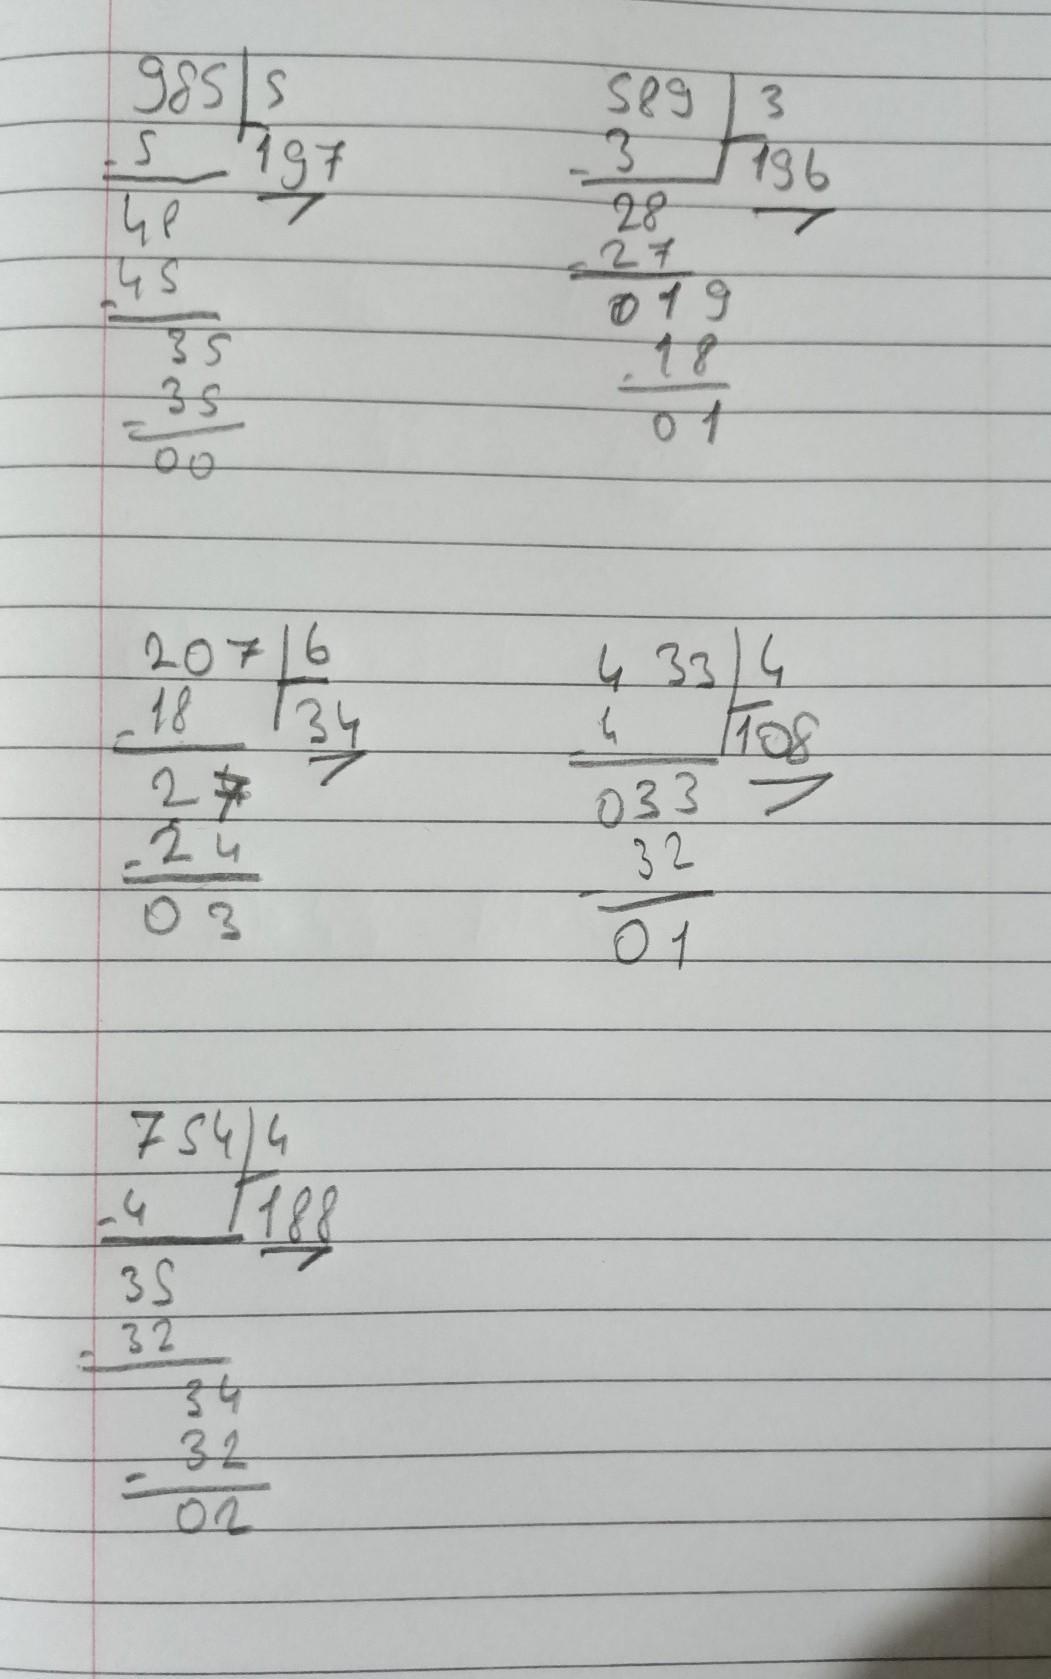 985 5
- 5 197
48
- 45
35
- 35
00
589 3
- 3 196
28
- 27
019
- 18
01
207 6
- 18 34
27
- 24
03
433 4
- 4 108
033
- 32
01
754 4
- 4 188
35
- 32
34
- 32
02